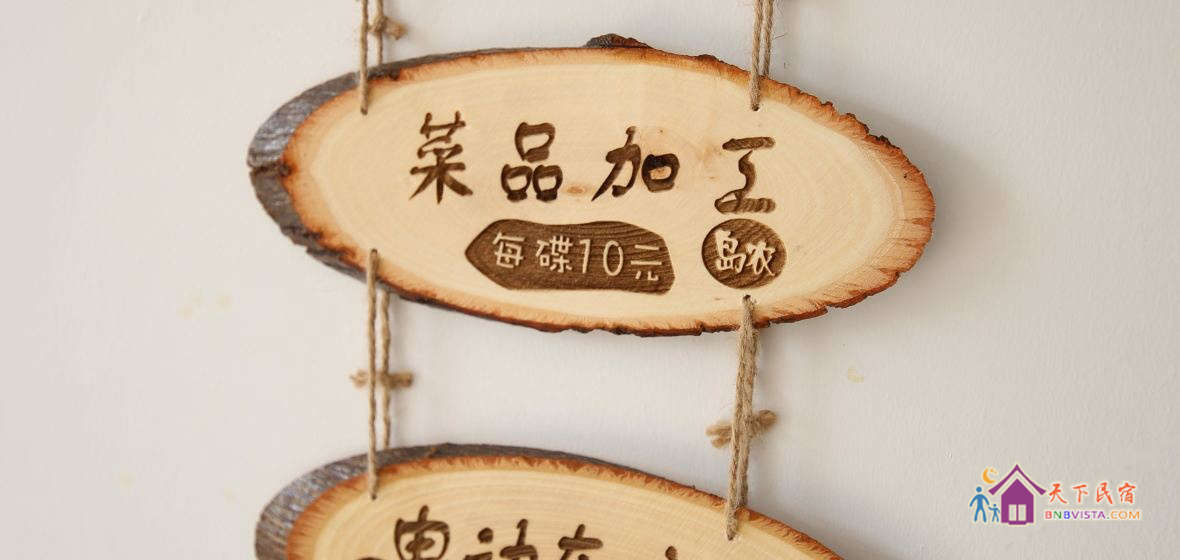 菜品加工
每碟10元
岛农
天下民宿
BNBVISTA.COM